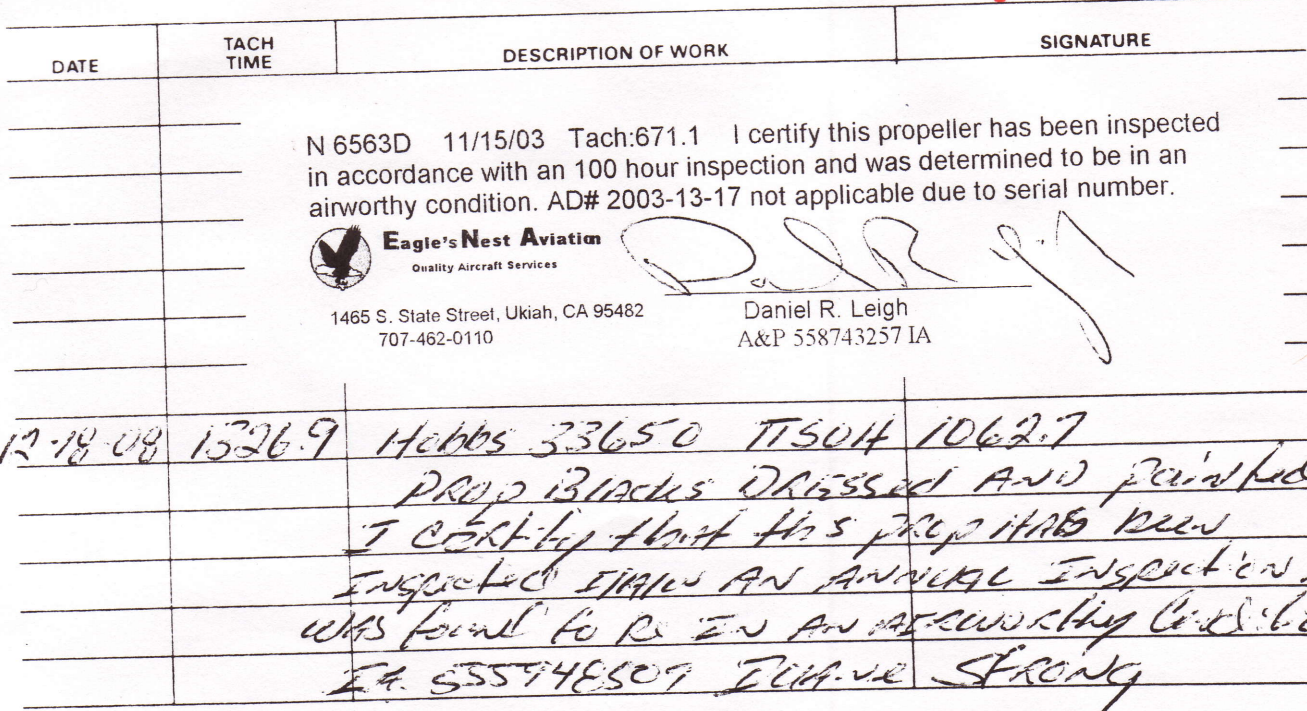 DATE TACH TIME DESCRIPTION OF WORK SIGNATURE
N 6563D 11/15/03 Tach:671.1 I certify this propeller has been inspected
in accordance with an 100 hour inspection and was determined to be in an
airworthy condition. AD# 2003-13-17 not applicable due to serial number.
Eagle's Nest Aviation
Quality Aircraft Services
1465 S. State Street, Ukiah, CA 95482
707-462-0110
Daniel R. Leigh
A&P 558743257 IA
12-18-08 1326.9 Hobbs 3365.0 TTSOH 1062.7
Prop Blades Dressed AND painted
I certify that this prop HAS been
Inspected I/A/W AN ANNUAL Inspection
WAS found to Be IN AN AIRWORTHY
IA STRONG